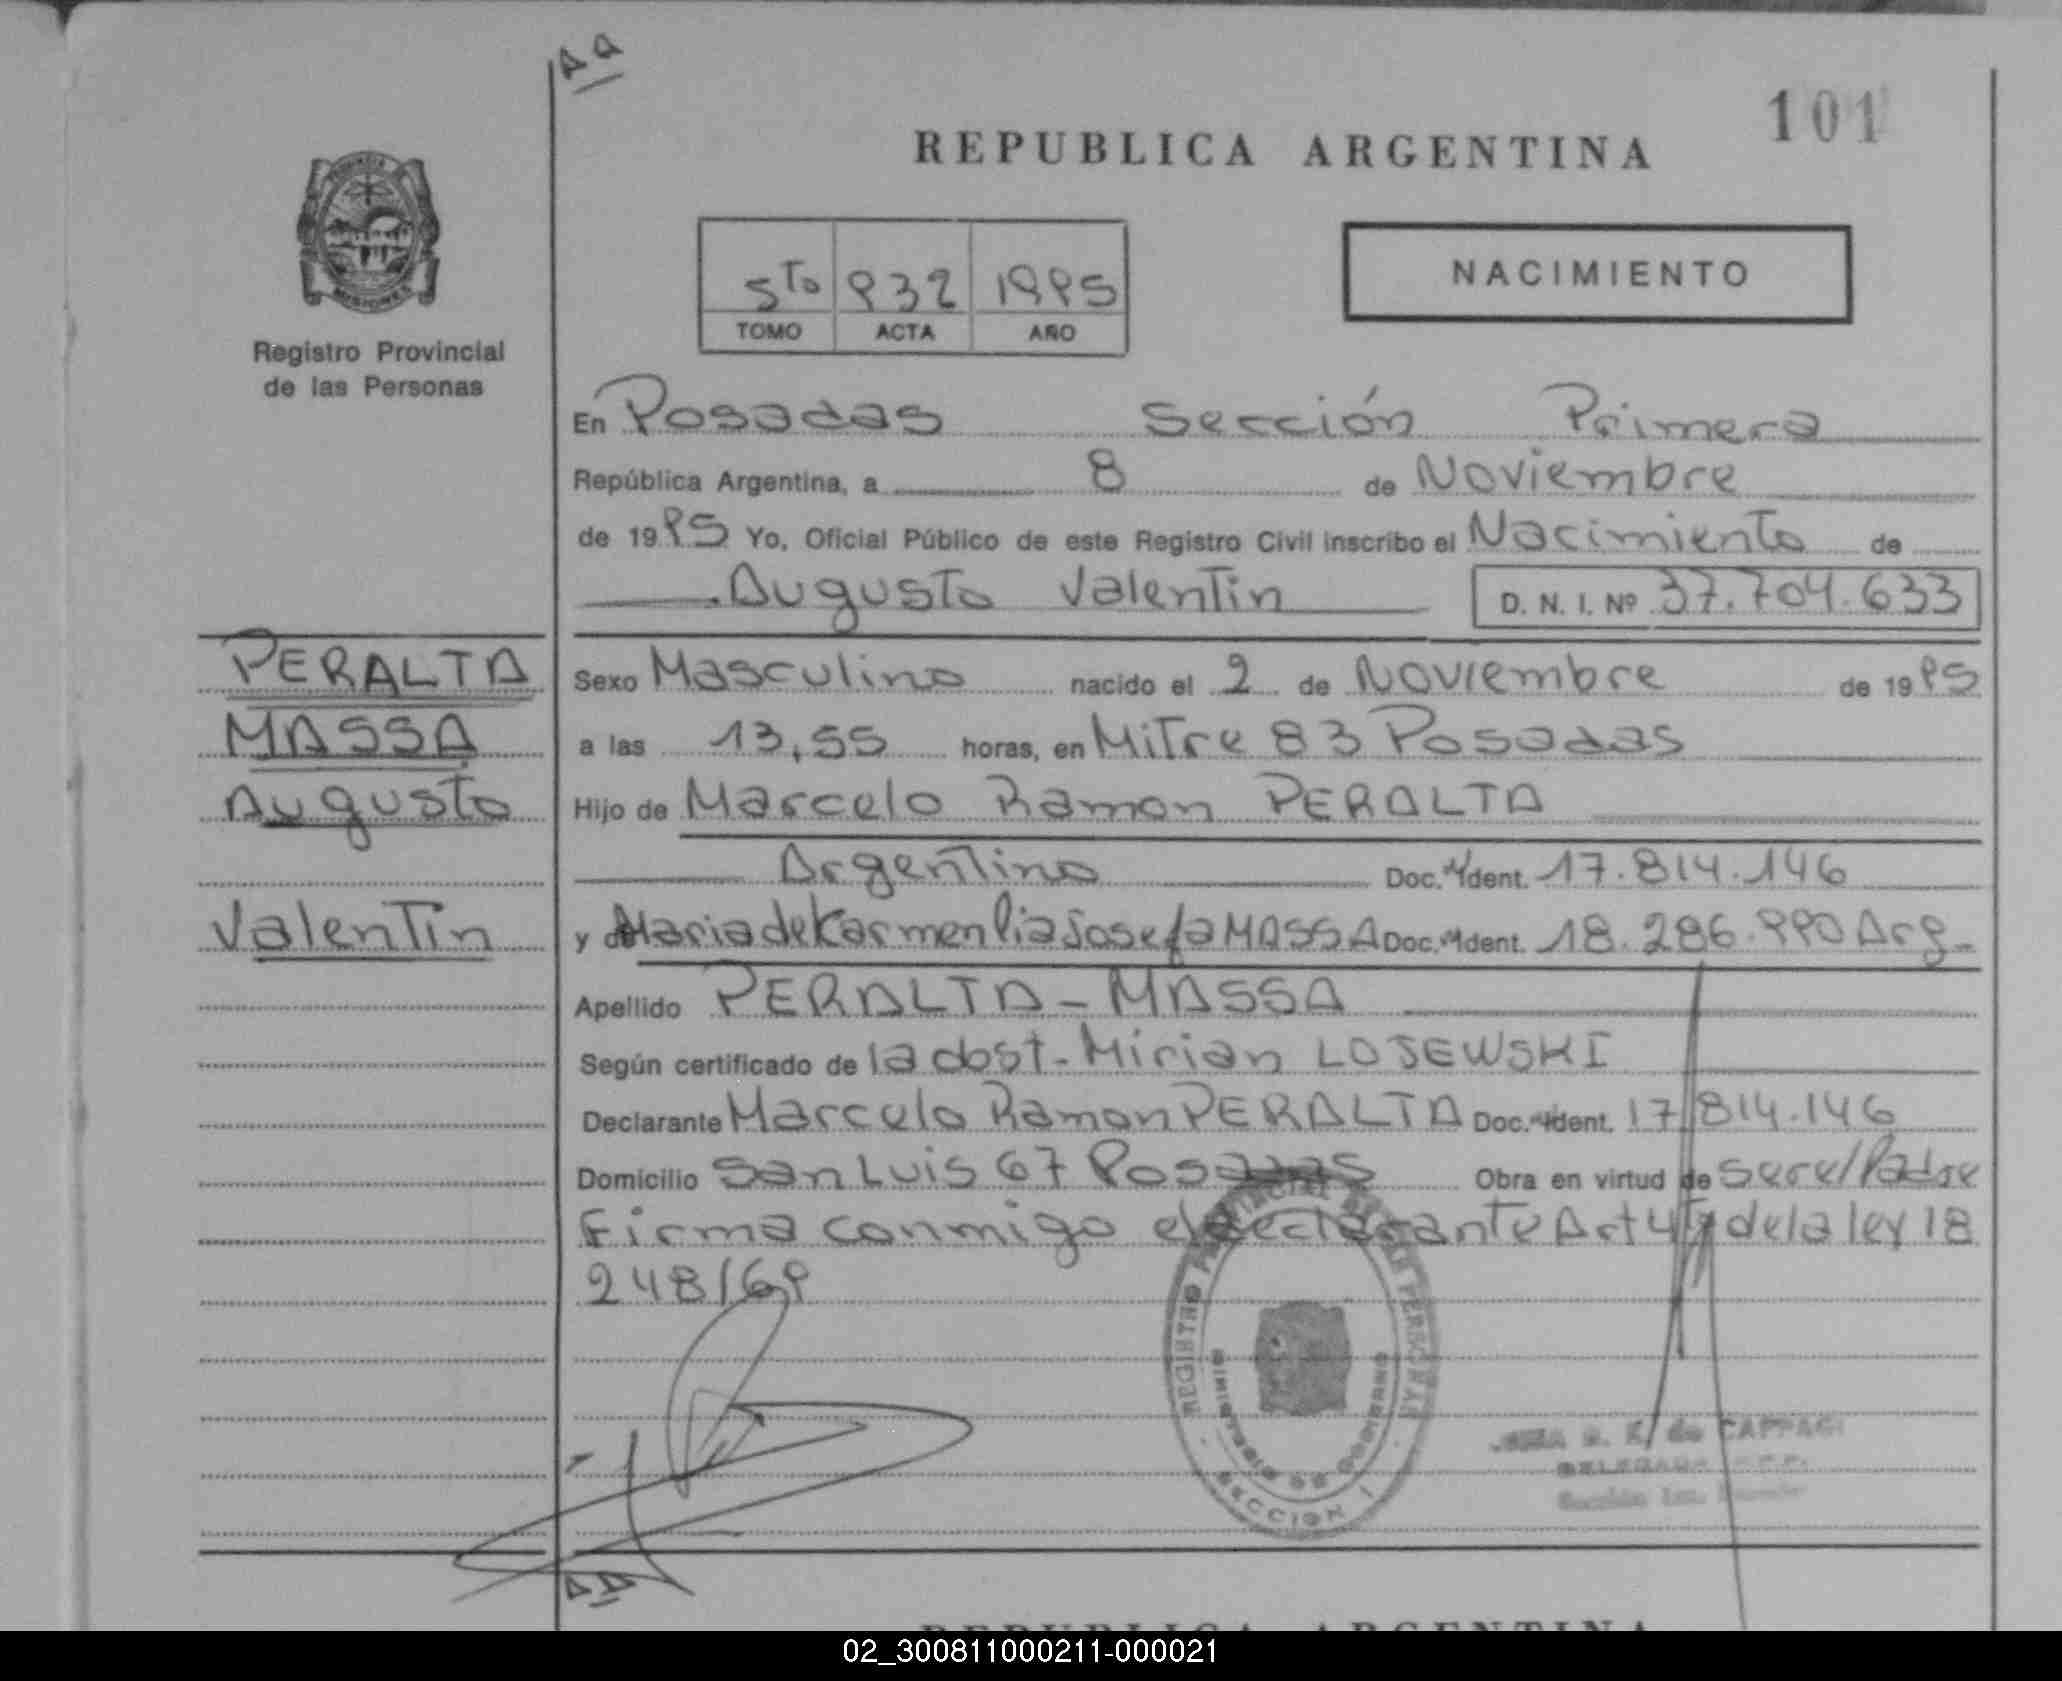 AA
101
REPUBLICA ARGENTINA
PROVINCIA
MISIONES
Registro Provincial
de las Personas
5To 932 1995
TOMO ACTA AÑO
NACIMIENTO
En Posadas Sección Primera
República Argentina, a 8 de Noviembre
de 1995 Yo, Oficial Público de este Registro Civil inscribo el Nacimiento de
Augusto Valentin D. N. I. Nº 37.704.633
PERALTA
MASSA
Augusto
Valentin
Sexo Masculino nacido el 2 de Noviembre de 1995
a las 13,55 horas, en Mitre 83 Posadas
Hijo de Marcelo Ramon PERALTA
Argentino Doc. Ident. 17.814.146
y de Maria del Carmen lia Josefa MASSA Doc. Ident. 18.286.990 Arg.
Apellido PERALTA - MASSA
Según certificado de la obst. Mirian LOJEWSKI
Declarante Marcelo Ramon PERALTA Doc. Ident. 17.814.146
Domicilio San Luis 67 Posadas Obra en virtud de ser el Padre
Firma conmigo el declarante Art 4 de la ley 18
248/69
REGISTRO PROVINCIAL DE LAS PERSONAS
MINISTERIO DE GOBIERNO
SECCION 1
de CAPPAGI
DELEGADA
Sección 1ra.
AA
REPUBLICA ARGENTINA
02_300811000211-000021